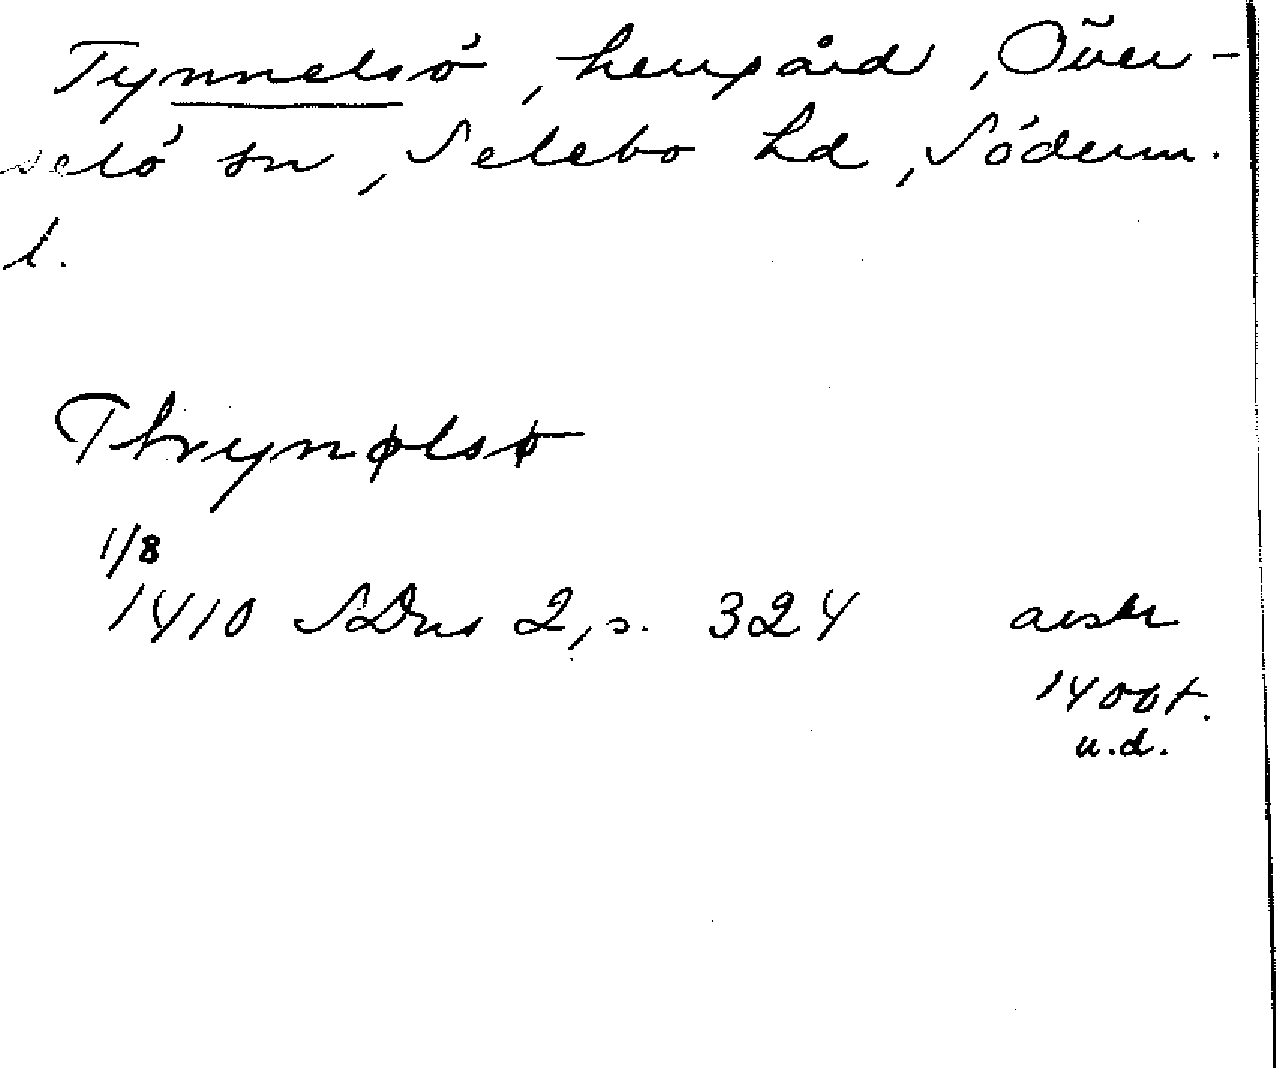 Tynnelsö, herrgård, Över-
selö sn, Selebo hd, Söderm.
l.
Thrynølsø
1/8
1410 SDns 2, s. 324 avskr
1400t.
u.d.